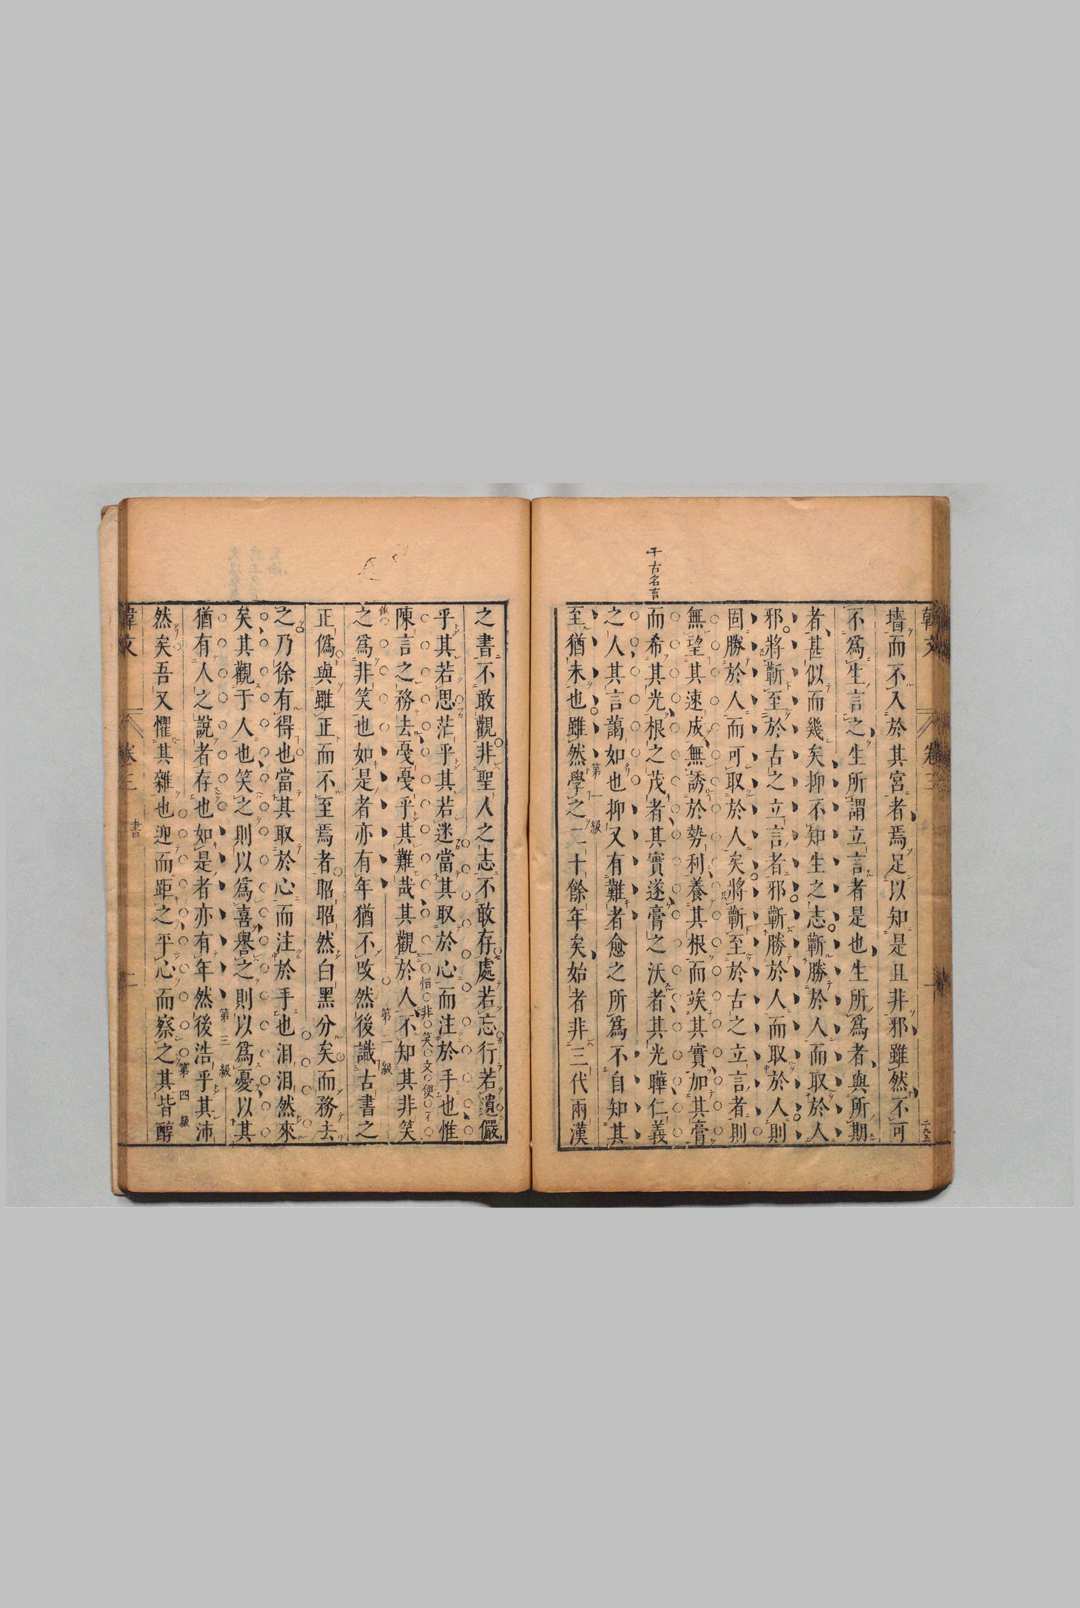 千古名言
墻而不入於其宮者焉足以知是且非邪雖然不可
不為生言之生所謂立言者是也生所為者與所期
者甚似而幾矣抑不知生之志蘄勝於人而取於人
邪將蘄至於古之立言者邪蘄勝於人而取於人則
固勝於人而可取於人矣將蘄至於古之立言者則
無望其速成無誘於勢利養其根而竢其實加其膏
而希其光根之茂者其實遂膏之沃者其光曄仁義
之人其言藹如也抑又有難者愈之所為不自知其
至猶未也雖然學之二十餘年矣始者非三代兩漢
第一級
之書不敢觀非聖人之志不敢存處若忘行若遺儼
乎其若思茫乎其若迷當其取於心而注於手也惟
陳言之務去戞戞乎其難哉其觀於人不知其非笑
之為非笑也如是者亦有年猶不改然後識古書之
第二級
正偽與雖正而不至焉者昭昭然白黑分矣而務去
之乃徐有得也當其取於心而注於手也汩汩然來
矣其觀于人也笑之則以為喜譽之則以為憂以其
猶有人之說者存也如是者亦有年然後浩乎其沛
第三級
然矣吾又懼其雜也迎而距之平心而察之其皆醇
第四級
韓文
卷三
書